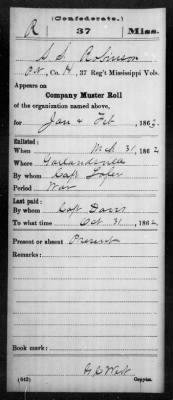 (Confederate.)
R 37 Miss.
S S Robinson
Pvt, Co. H, 37 Reg't Mississippi Vols.
Appears on
Company Muster Roll
of the organization named above,
for Jan & Feb, 186
Enlisted:
When Mch 31, 1862
Where
By whom Capt Loper
Period War
Last paid:
By whom Capt Davis
To what time Oct 31, 1862
Present or absent Present
Remarks:
Book mark:
(642) Copyist.